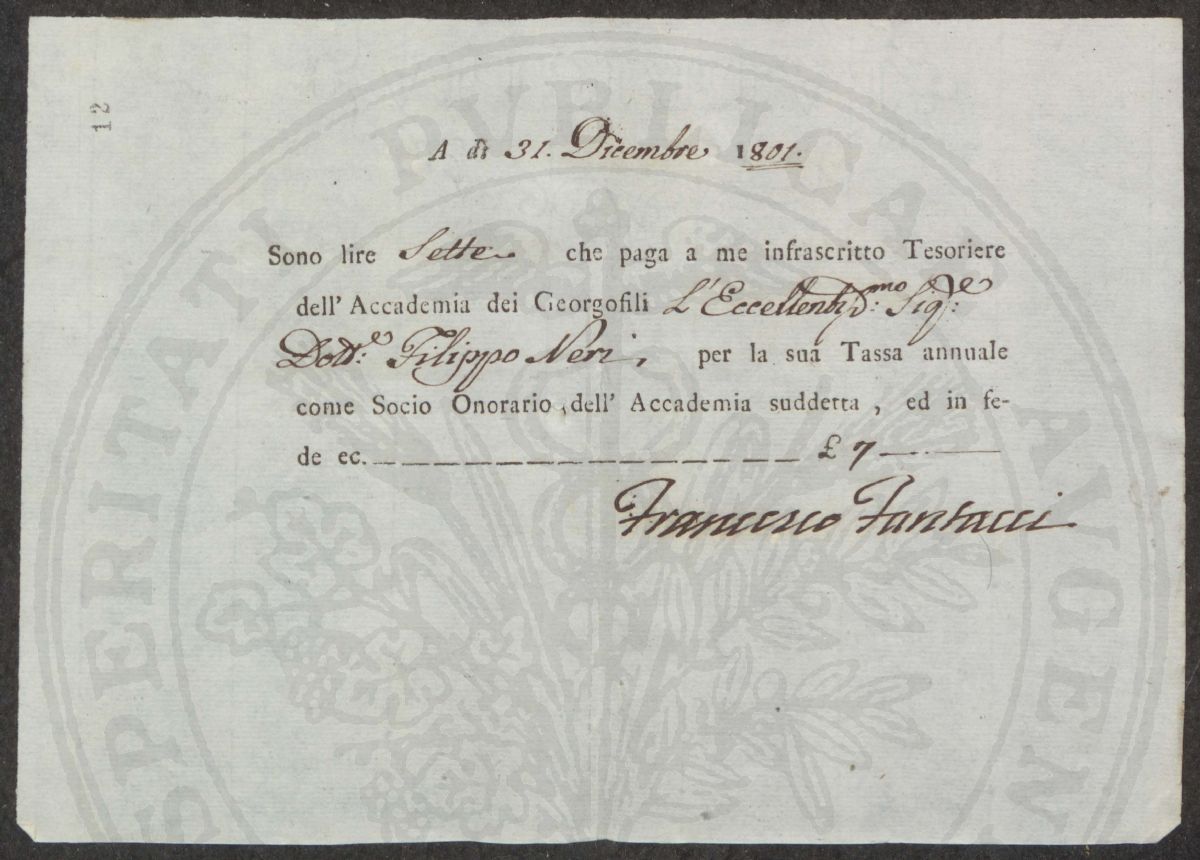 12
A dì 31. Dicembre 1801.
Sono lire Sette che paga a me infrascritto Tesoriere
dell' Accademia dei Georgofili L'Eccellentiss.mo Sig.e
Dott.e Filippo Neri, per la sua Tassa annuale
come Socio Onorario dell' Accademia suddetta, ed in fe-
de ec. £ 7
Francesco Fantacci
SPERITATI PVBLICAE AVGEN